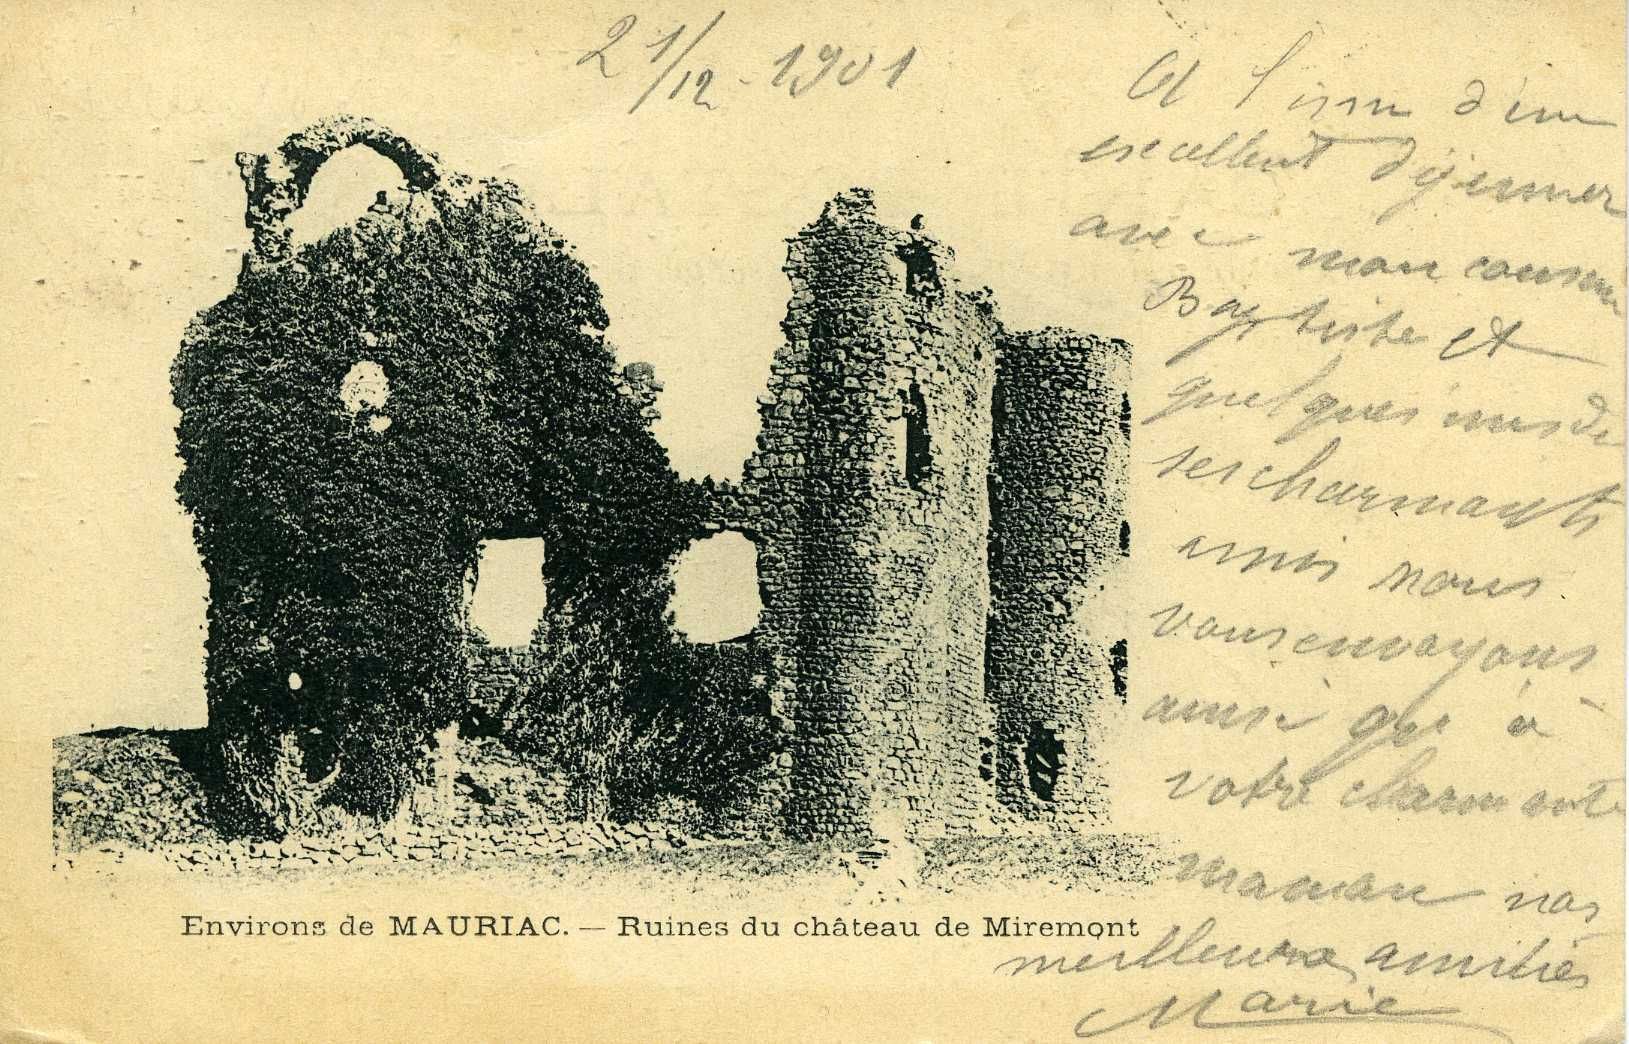 21/12 - 1901
A l'issu d'un
excellent déjeuner
avec mon cousin
Baptiste et
quelques uns de
ses charmants
amis nous
vous envoyons
ainsi que à
votre charmante
maman nos
meilleures amitiés
Marie
Environs de MAURIAC. — Ruines du château de Miremont